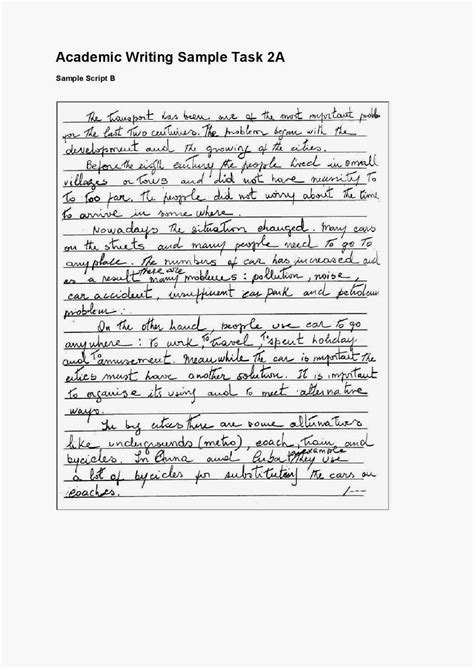 Academic Writing Sample Task 2A
Sample Script B
The transport has been one of the most important problem
for the last two centuries. The problem began with the
development and the growing of the cities.
Before the eigth century the people lived in small
villages or towns and did not have necessity to
to too far. The people did not worry about the time
to arrive in some where.
Nowadays the situation changed. Many cars
on the streets and many people need to go to
any place. The numbers of car has increased and
as a result there are many problems: pollution, noise,
car accident, insufficient car park and petroleum
problem.
On the other hand, people use car to go
anywhere: to work, to travel, to spent holiday
and to amusement. Meanwhile the car is important the
cities must have another solution. It is important
to organise its using and to meet alternative
ways.
In big cities there are some alternatives
like undergrounds (metro), coach, train and
bycicles. In China and Cuba, example they use
a lot of bycicles for substituting the cars or
coaches.
1---